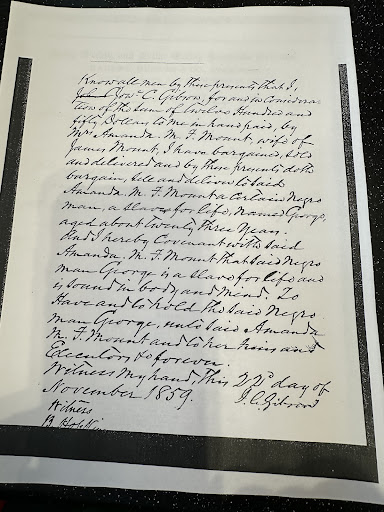 Know all men by these presents that I,
John Jown C. Gibson, for and in Considera-
tion of the sum of Twelve Hundred and
fifty Dollars to me in hand paid, by
Mrs. Amanda. M. F. Mount, wife of
James Mount, I have bargained, sold
and delivered and by these presents doth
bargain, sell and deliver to said
Amanda. M. F. Mount a certain Negro
man, a slave for life, Named George,
aged about twenty three Years.
And I hereby Covenant with said
Amanda. M. F. Mount that said Negro
man George is a slave for life and
is sound in body and mind. To
Have and to hold the said Negro
man George, unto said Amanda
M. F. Mount and to her heirs and
Executors &c forever.
Witness my hand, This 22d day of
November 1859. J. C. Gibson
Witness
B.